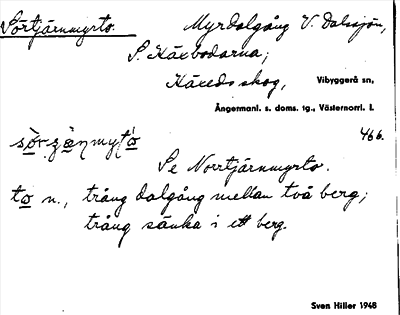 Sörtjärnmyrto. Myrdalgång V. Dalsjön,
S. Kärbodarna;
Häxeds skog, Vibyggerå sn,
Ångermanl. s. doms. tg., Västernorrl. l.
466.
Se Norrtjärnmyrto.
to n., trång dalgång mellan två berg;
trång sänka i ett berg.
Sven Hiller 1948